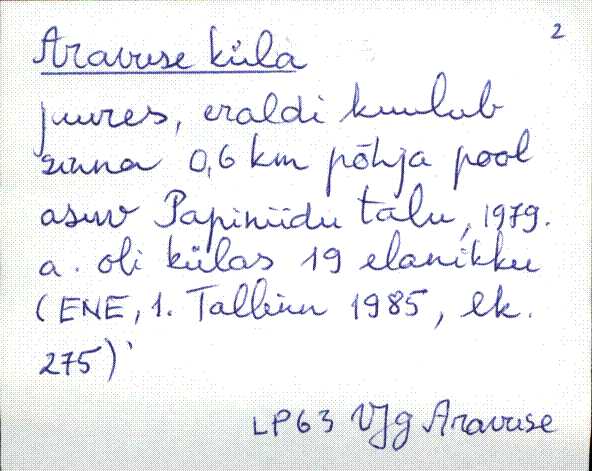 2
Aravuse küla
juures, eraldi kuulub
sinna 0,6 km põhja pool
asuv Papiniidu talu, 1979.
a. oli külas 19 elanikku
(ENE, 1. Tallinn 1985, lk.
275)
LP63 VJg Aravuse